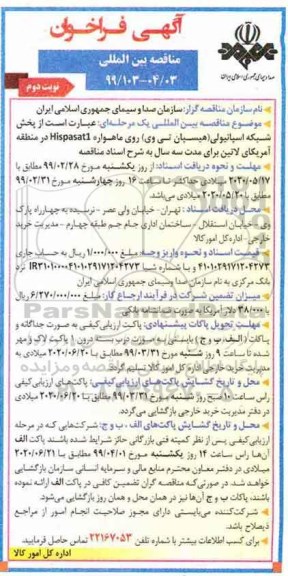 آگهی فراخوان
مناقصه بین المللی
۹۹/۱۰۳-۰۴/۰۳
نوبت دوم
صدا و سیمای جمهوری اسلامی ایران
نام سازمان مناقصه گزار: سازمان صدا و سیمای جمهوری اسلامی ایران
موضوع مناقصه بین‌المللی یک مرحله‌ای: عبارت است از پخش
شبکه اسپانیولی (هیسپان تی وی) روی ماهواره Hispasat1 در منطقه
آمریکای لاتین برای مدت سه سال به شرح اسناد مناقصه
مهلت و نحوه دریافت اسناد: از روز یکشنبه مورخ ۹۹/۰۲/۲۸ مطابق با
۲۰۲۰/۰۵/۱۷ میلادی حداکثر تا ساعت ۱۶ روز چهارشنبه مورخ ۹۹/۰۲/۳۱
مطابق با ۲۰۲۰/۰۵/۲۰ میلادی می‌باشد
محل دریافت اسناد: تهران - خیابان ولی عصر - نرسیده به چهارراه پارک
وی - خیابان استقلال - ساختمان اداری جام جم طبقه چهارم - مدیریت خرید
خارجی - اداره کل امور کالا
قیمت اسناد و نحوه واریز وجه: مبلغ ۱/۰۰۰/۰۰۰ ریال به حساب جاری
۴۱۰۱۰۲۹۱۷۱۲۰۴۲۷۳ و یا شماره شبا نزد
بانک مرکزی به نام سازمان صدا وسیمای جمهوری اسلامی ایران
میزان تضمین شرکت در فرآیند ارجاع کار: مبلغ ۶/۲۷۰/۰۰۰/۰۰۰ ریال
یا ۳۸/۰۰۰ دلار آمریکا به صورت ضمانتنامه بانکی
مهلت تحویل پاکات پیشنهادی: پاکت ارزیابی کیفی به صورت جداگانه و
پاکات (الف، ب و ج) بایستی درون پاکت لاک و مهر
شده تا ساعت ۹ روز شنبه مورخ ۹۹/۰۳/۳۱ مطابق با ۲۰۲۰/۰۶/۲۰ به
مدیریت خرید خارجی اداره کل امور کالا تسلیم گردد
محل و تاریخ گشایش پاکت‌های ارزیابی کیفی: پاکت‌های ارزیابی کیفی
راس ساعت ۱۰ صبح روز شنبه مورخ ۹۹/۰۳/۳۱ مطابق با ۲۰۲۰/۰۶/۲۰ میلادی
در دفتر مدیریت خرید خارجی بازگشایی می‌گردد.
محل و تاریخ گشایش پاکت‌های الف - ب و ج: شرکت‌هایی که در مرحله
ارزیابی کیفی پس از نظر کمیته فنی بازرگانی حائز شرایط شده باشند پاکت الف
آن‌ها راس ساعت ۱۴ روز یکشنبه مورخ ۹۹/۰۴/۰۱ مطابق با ۲۰۲۰/۰۶/۲۱
میلادی در دفتر معاون محترم منابع مالی و سرمایه انسانی سازمان بازگشایی
خواهد شد. در صورتی‌که مناقصه گران تضمین کافی در پاکت الف ارائه نموده
باشند، پاکات ب و ج آن‌ها نیز در همان محل و همان روز بازگشایی می‌شود.
شرکت‌کننده می‌بایستی دارای مجوز صلاحیت انجام امور از مراجع
ذیصلاح باشد.
برای کسب اطلاعات بیشتر با شماره تلفن ۲۲۱۶۷۰۵۳ تماس حاصل فرمایید.
اداره کل امور کالا